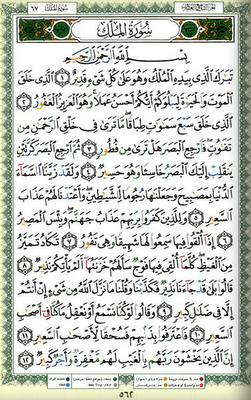 الجزء التاسع والعشرون
سورة الملك ٦٧
سُورَةُ المُلْكِ
بِسْمِ ٱللَّهِ ٱلرَّحْمَٰنِ ٱلرَّحِيمِ
تَبَٰرَكَ ٱلَّذِي بِيَدِهِ ٱلْمُلْكُ وَهُوَ عَلَىٰ كُلِّ شَيْءٍ قَدِيرٌ ١ ٱلَّذِي خَلَقَ
ٱلْمَوْتَ وَٱلْحَيَوٰةَ لِيَبْلُوَكُمْ أَيُّكُمْ أَحْسَنُ عَمَلًا وَهُوَ ٱلْعَزِيزُ ٱلْغَفُورُ ٢
ٱلَّذِي خَلَقَ سَبْعَ سَمَٰوَٰتٍ طِبَاقًا مَّا تَرَىٰ فِي خَلْقِ ٱلرَّحْمَٰنِ مِن
تَفَٰوُتٍ فَٱرْجِعِ ٱلْبَصَرَ هَلْ تَرَىٰ مِن فُطُورٍ ٣ ثُمَّ ٱرْجِعِ ٱلْبَصَرَ كَرَّتَيْنِ
يَنقَلِبْ إِلَيْكَ ٱلْبَصَرُ خَاسِئًا وَهُوَ حَسِيرٌ ٤ وَلَقَدْ زَيَّنَّا ٱلسَّمَآءَ
ٱلدُّنْيَا بِمَصَٰبِيحَ وَجَعَلْنَٰهَا رُجُومًا لِّلشَّيَٰطِينِ وَأَعْتَدْنَا لَهُمْ عَذَابَ
ٱلسَّعِيرِ ٥ وَلِلَّذِينَ كَفَرُوا۟ بِرَبِّهِمْ عَذَابُ جَهَنَّمَ وَبِئْسَ ٱلْمَصِيرُ
٦ إِذَآ أُلْقُوا۟ فِيهَا سَمِعُوا۟ لَهَا شَهِيقًا وَهِيَ تَفُورُ ٧ تَكَادُ تَمَيَّزُ
مِنَ ٱلْغَيْظِ كُلَّمَآ أُلْقِيَ فِيهَا فَوْجٌ سَأَلَهُمْ خَزَنَتُهَآ أَلَمْ يَأْتِكُمْ نَذِيرٌ ٨
قَالُوا۟ بَلَىٰ قَدْ جَآءَنَا نَذِيرٌ فَكَذَّبْنَا وَقُلْنَا مَا نَزَّلَ ٱللَّهُ مِن شَيْءٍ إِنْ أَنتُمْ
إِلَّا فِي ضَلَٰلٍ كَبِيرٍ ٩ وَقَالُوا۟ لَوْ كُنَّا نَسْمَعُ أَوْ نَعْقِلُ مَا كُنَّا فِيٓ أَصْحَٰبِ
ٱلسَّعِيرِ ١٠ فَٱعْتَرَفُوا۟ بِذَنۢبِهِمْ فَسُحْقًا لِّأَصْحَٰبِ ٱلسَّعِيرِ ١١
إِنَّ ٱلَّذِينَ يَخْشَوْنَ رَبَّهُم بِٱلْغَيْبِ لَهُم مَّغْفِرَةٌ وَأَجْرٌ كَبِيرٌ ١٢
٥٦٢